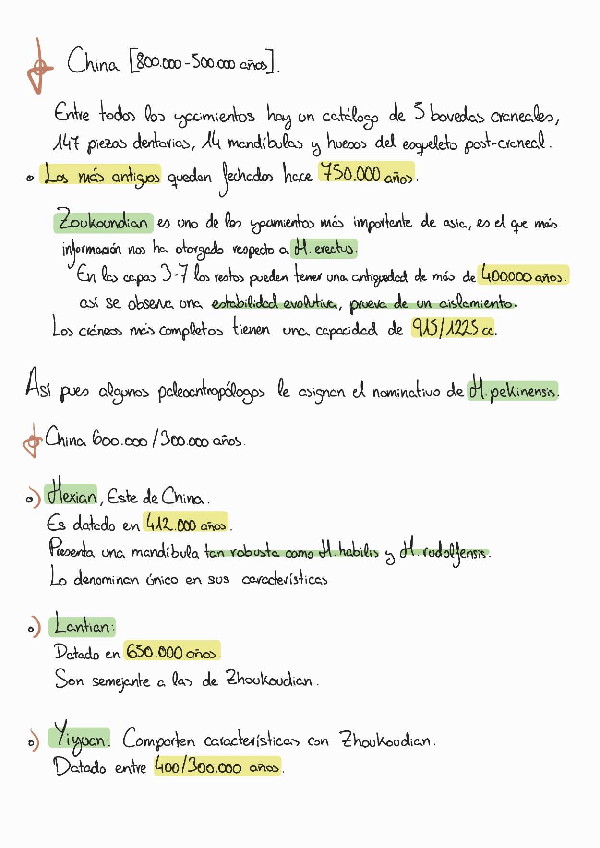 China [800.000-500.000 años].
Entre todos los yacimientos hay un catálogo de 5 bovedas craneales,
147 piezas dentarias, 14 mandíbulas y huesos del esqueleto post-craneal.
Los más antigos quedan fechados hace 750.000 años.
Zoukoundian es uno de los yacimientos más importante de asia, es el que más
información nos ha otorgado respecto a H. erectus.
En las capas 3-7 los restos pueden tener una antiguedad de más de 400000 años.
así se observa una estabilidad evolutiva, prueva de un aislamiento.
Los cráneos más completos tienen una capacidad de 915/1225 cc.
Así pues algunos paleoantropólogos le asignan el nominativo de H. pekinensis.
China 600.000/300.000 años.
Hexian, Este de China.
Es datado en 412.000 años.
Presenta una mandíbula tan robusta como H. habilis y H. rudolfensis.
Lo denominan único en sus características
Lantian:
Datado en 650.000 años
Son semejante a las de Zhoukoudian.
Yiyuan. Comparten características con Zhoukoudian.
Datado entre 400/300.000 años.